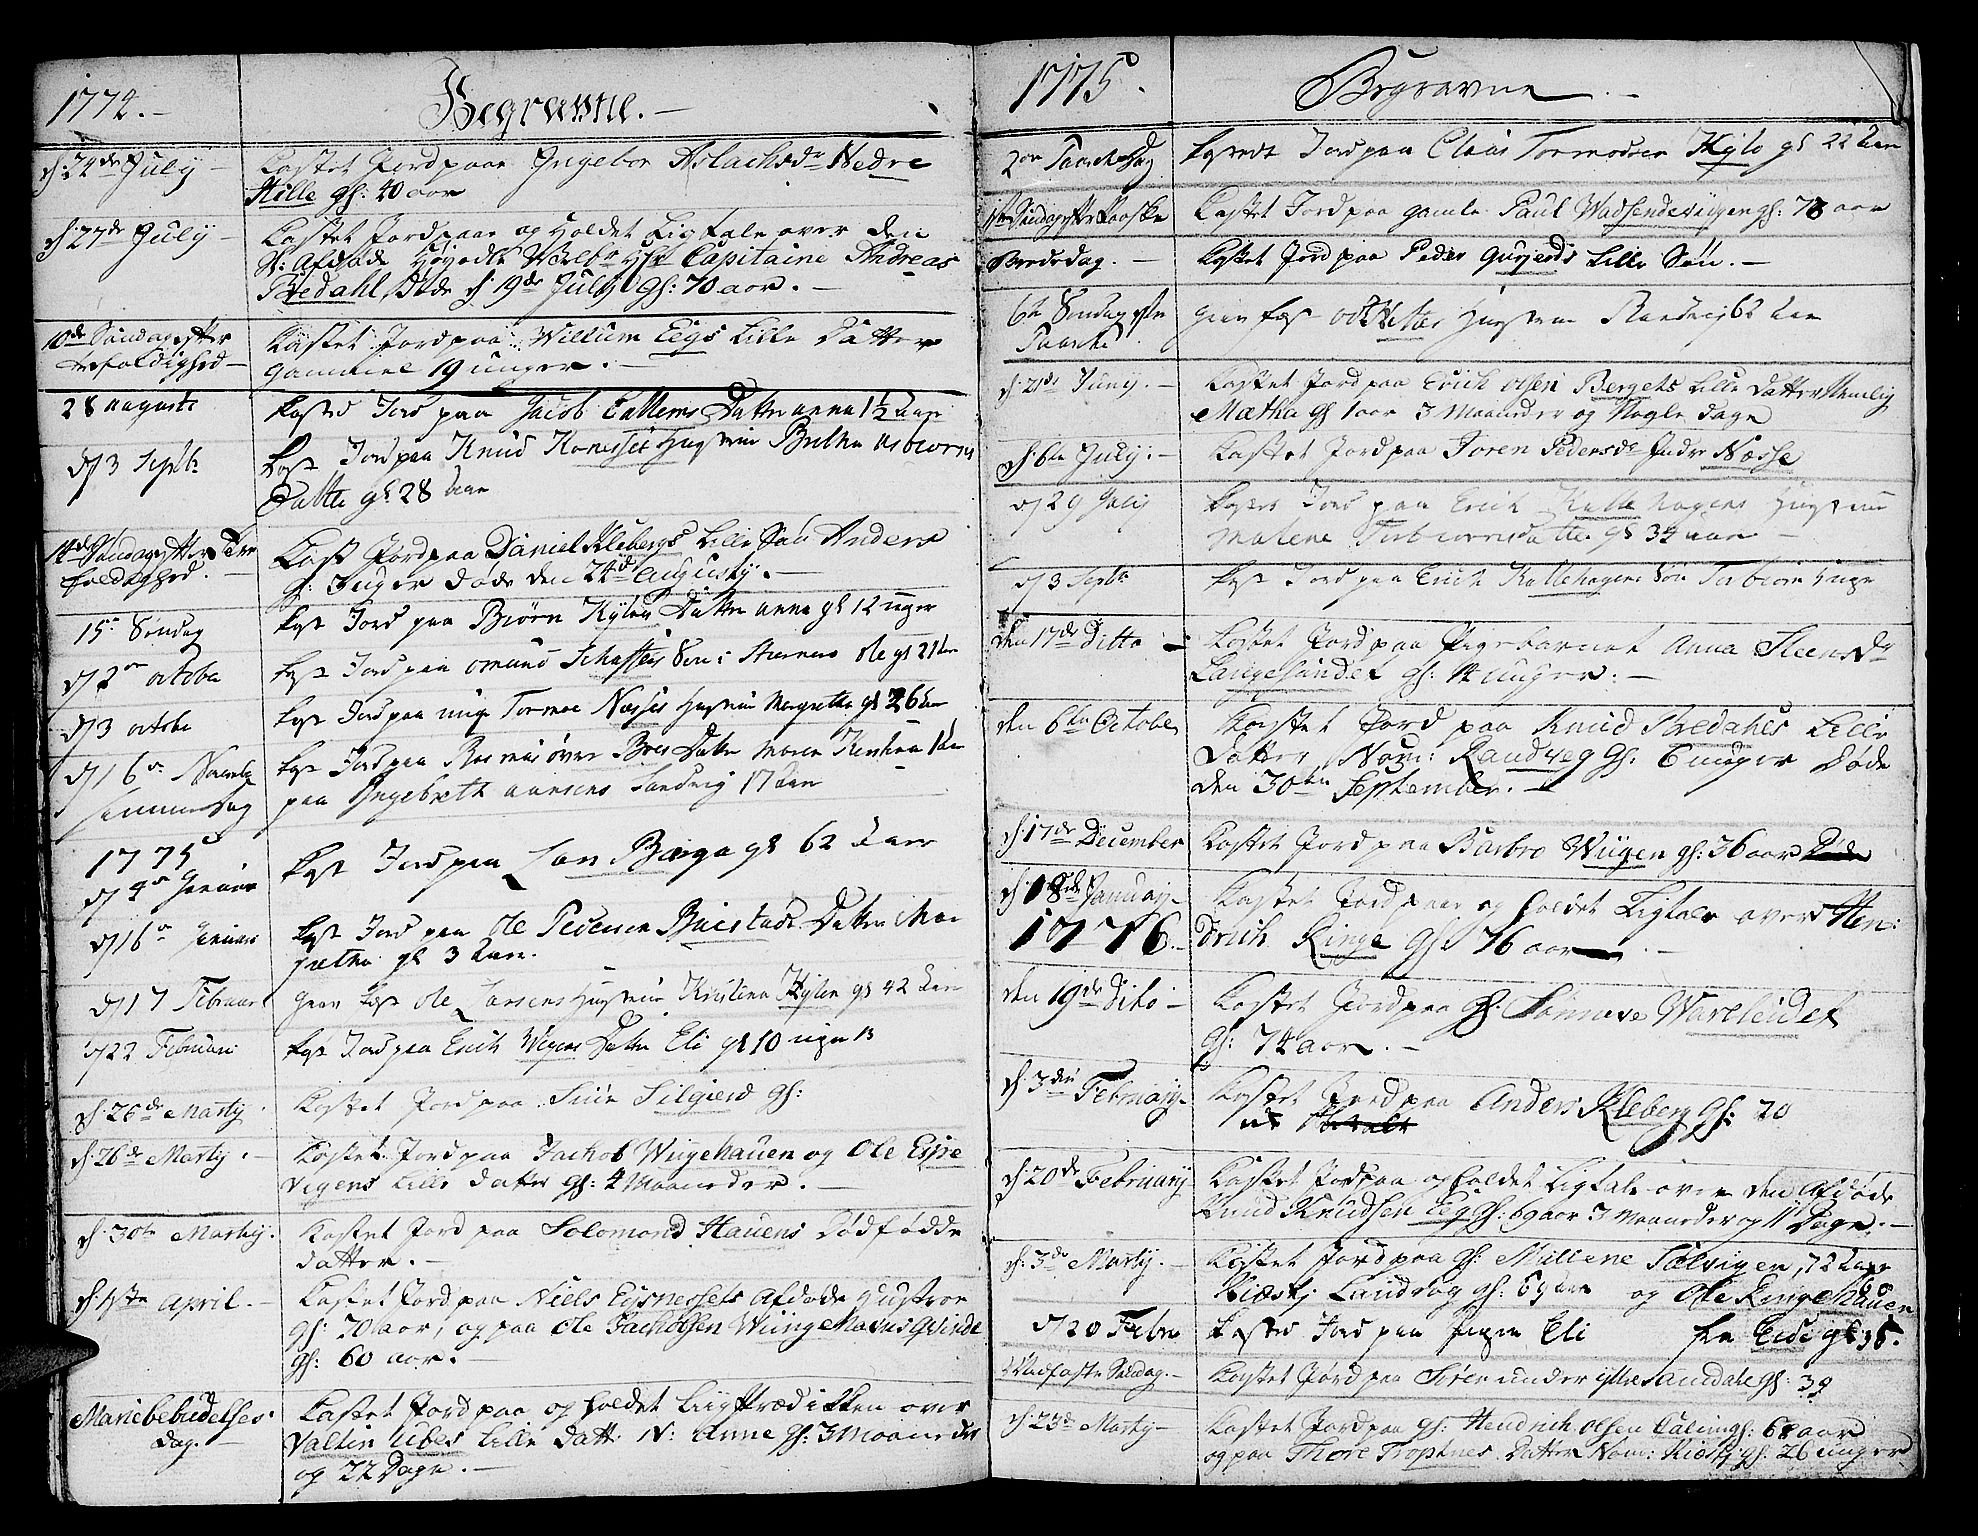 1774.-
Begravne.-
d: 24de July -
Kastet Jord paa Ingebor Aslachsdr Nedre
Hille gl: 40 aar
d: 27de July -
Kastet Jord paa og Holdet Ligtale over den
Sl: Afdøde Capitaine Andreas
Bredahl, døde d: 19de July gl: 70 aar. -
10de Søndag efter
trefoldighed -
Kastet Jord paa Willum Eegs Lille Datter
gammel 19 uuger. -
28 augusti
Kasted Jord paa Jacob Datter anna 1½ aar
d/3 Septb
Kast Jord paa Knud Hustrue asbiorns
Datter gl 28 aar
14de Søndag efter Tre
foldighed. -
Kast Jord paa Daniel Klebergs Lille Søn Anders
gl: uger døde den 24de Augusty. -
15de Søndag
Kast Jord paa Biørn Kylen Datter anna gl 12 uger
d/2 october
Kast Jord paa omund Søn ole gl 21 aar
d/3 octobr
Kast Jord paa unge Tormoe Næsses Hustrue Margretha gl 26 aar
d/16 Novemb
Kast Jord paa Boes Datter maren 1 aar
paa Ingebreth aansens Sandvig 17 aar
1775
d/9 Januar
Kast Jord paa Lars Berge gl 62 aar
d/16 Januar
Kast Jord paa ole Pedersen Buestads Datter Mar
gretha gl 3 aar.
d/17 Februar
ole Larsens Hustrue Kristina Hylen gl 42 aar
d/22 Februar
Kast Jord paa Erich Wigens Datter Eli gl 10 uger
d: 26de Marty.
Kastet Jord paa Siur Silgierd gl:
d: 26de Marty. -
Kastet Jord paa Jachob Wiigehauen og Ole Espe
vigens Lille datter gl: 4 Maaneder. -
d: 30te Marty.
Kastet Jord paa Solomond Hauens Dødfødde
datter. -
d: 1ste April. -
Kastet Jord paa Niels Egsnessets Afdøde Hustroe
gl: 70 aar, og paa Ole Jachobsen Wiinge Haves Qvinde
gl: 60 aar. -
Mariebebudelses
dag. -
Kastet Jord paa og Holdet Liigprædicken over
Valtin Ubes Lille datt: N: Anne gl: 3 Maaneder
og 22 Dage. -
1775.
Begravne. -
2den Paaskedag
Kastedt Jord paa Claus Tormodsen Hylo gl 22 aar
1ste Søndag efter Paaske
Kastet Jord paa gamle Paul Wadsendevigen gl: 78 aar
Beededag. -
Kastet Jord paa Peder Gusierds Lille Søn. -
6te Søndag efter
Paaske.
Hustrue Randvig 62 aar
d: 21de Juny. -
Kastet Jord paa Erich olsen Bergets Lille datter Nemlig
Mætha gl 1 aar 3 Maaneder og Nogle dage
d: 6te July. -
Kastet Jord paa Joren Pedersdr Indre Næsse
d/29 July
Kasted Jord paa Erich Kallehagens Hustrue
Malene Torbiornsdatter gl 34 aar -
d/3 Septbr
Kast Jord paa Erich Kallehagens Søn Torbiorn uger
den 17de Ditto -
Kastet Jord paa Pigebarnet Anna Steensdr
Langesandet gl: 14 uuger. -
den 6te October
Kastet Jord paa Knud Bredahls Lille
Datter, Navn: Randveg gl: 6 uuger døde
den 30te September. -
d: 17de December
Kastet Jord paa Barbro Wiigen gl: 36 aar
d: 18de Januarj
1776. -
Kastet Jord paa og holdet Ligtale over Hen:
drich Ringe gl: 76 aar -
den 19de dito -
Kastet Jord paa gl: Sønneve Wareleidet
gl: 74 aar. -
d: 3die Februarij -
Kastet Jord paa Anders Kleberg gl: 20
d: 20de Februarij
Kastet Jord paa og holdet Ligtale over den Afdøde
Knud Knudsen Eeg gl: 69 aar 3 Maaneder og 11 Dage. -
d: 3de Marty. -
Kastet Jord paa gl: Mallene Sælvigen, 72 aar
Kiæstj Landvog gl: 69 aar og Ole Ringehauen 60
d/20 Febru
Kasted Jord paa Pigen Eli fra Eide gl 35.
Midfaste Søndag. -
Kastet Jord paa Søren under ytte Samdale gl: 39
d: 23de Marty -
Kastet Jord paa gl: Hendrich olsen gl: 68 aar
og paa Thore Tropnes datter Nom: Kiestj gl: 26 uuger